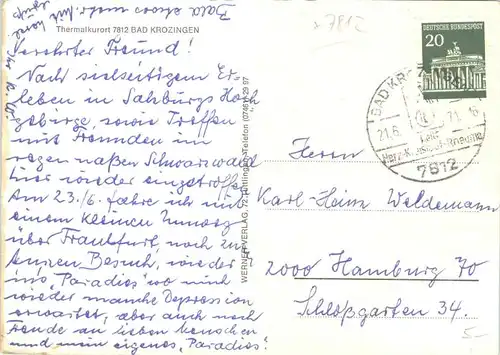 Thermalkurort 7812 BAD KROZINGEN
Verehrter Freund!
Nach vielseitigem Er-
leben in Salzburgs Hoch-
gebirge, sowie Treffen
mit Freunden im
regen naßen Schwarzwald
hier wieder eingetroffen.
Am 23./6. fahre ich mit
einem kleinen Umweg
über Frankfurt, noch zu
kurzen Besuch, wieder
ins "Paradies" wo mich
wieder manche Depression
erwartet, aber auch noch
Freude an lieben Menschen
und mein eigenes "Paradies"!
Bald etwas mehr.
WERNER VERLAG, 72 Tuttlingen, Telefon (07461) 29 97
7812
DEUTSCHE BUNDESPOST
20
BAD KRO
21.6.71-16
Herz-Kreislauf-Rheuma
7812
Herrn
Karl-Heinz Waldemann
2000 Hamburg 70
Schloßgarten 34.
5-